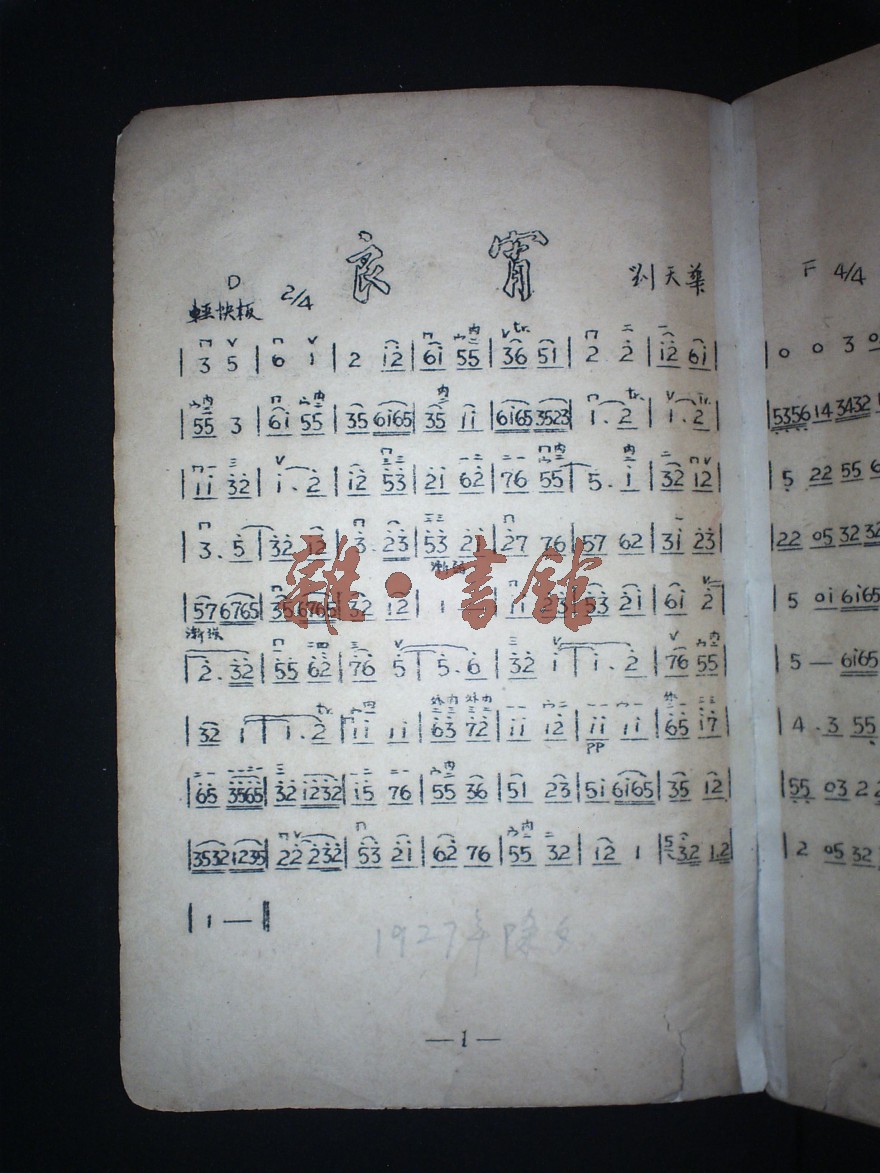 良宵
D 2/4 劉天華
輕快板
| 3 5 | 6 1 | 2 i2 | 6i 55 | 36 51 | 2 2 | i2 6i |
| 55 3 | 6i 55 | 35 6i65 | 35 11 | 6i65 3523 | 1. 2 | 1. 2 |
| 11 32 | 1. 2 | 12 53 | 21 62 | 76 55 | 5. 1 | 32 12 |
| 3. 5 | 32 12 | 3. 23 | 53 21 | 27 76 | 57 62 | 31 23 |
漸弱
| 57 6765 | 35 6765 | 32 12 | 1 — | 11 23 | 53 21 | 61 2 |
漸強
| 2. 32 | 55 62 | 76 5 | 5. 6 | 32 1 | 1. 2 | 76 55 |
| 32 1 | 1. 2 | 11 11 | 63 72 | 11 12 | 11 11 | 65 17 |
pp
| 65 3565 | 32 1232 | 15 76 | 55 36 | 51 23 | 5i 6i65 | 35 12 |
| 3532 1235 | 22 232 | 53 21 | 62 76 | 55 32 | 12 1 | 32 1.2 |
| 1 — ‖
1927年除夕
— 1 —
雜·書館
F 4/4
| 0 0 3 0
| 5356 14 3432
| 5 22 55 6
| 22 05 32 32
| 5 0i 6i65
| 5 — 6i65
| 4 . 3 55
| 55 03 22
| 2 05 32